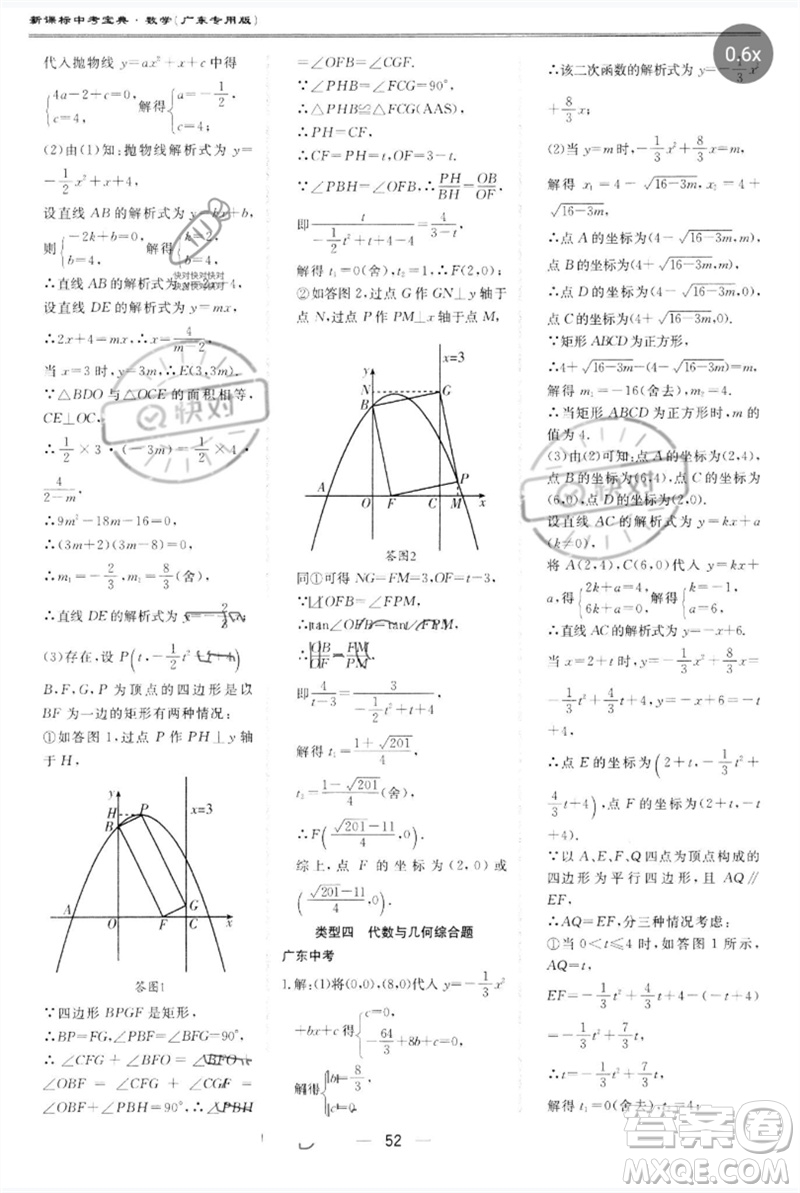 新课标中考宝典·数学(广东专用版)
0.6x
代入抛物线 y=ax²+x+c 中得
{4a-2+c=0, c=4, 解得{a=-1/2, c=4.
(2)由(1)知:抛物线解析式为 y=
-1/2x²+x+4,
设直线 AB 的解析式为 y=kx+b,
则{-2k+b=0, b=4, 解得{k=2, b=4.
∴直线 AB 的解析式为 y=2x+4,
设直线 DE 的解析式为 y=mx,
∴2x+4=mx, ∴x=4/(m-2),
当 x=3 时, y=3m, ∴E(3,3m),
∵△BDO 与△OCE 的面积相等,
CE⊥OC,
∴1/2×3·(-3m)=1/2×4·
4/(2-m),
∴9m²-18m-16=0,
∴(3m+2)(3m-8)=0,
∴m₁=-2/3, m₂=8/3(舍),
∴直线 DE 的解析式为 y=-2/3x.
(3)存在,设 P(t,-1/2t²+t+4),
B,F,G,P 为顶点的四边形是以
BF 为一边的矩形有两种情况:
①如答图 1,过点 P 作 PH⊥y 轴
于 H,
y
x=3
H
P
B
G
A
O
F
C
x
答图1
∵四边形 BPGF 是矩形,
∴BP=FG,∠PBF=∠BFG=90°,
∴∠CFG+∠BFO=∠BFO+
∠OBF=∠CFG+∠CGF=
∠OBF+∠PBH=90°,∴∠PBH
=∠OFB=∠CGF.
∵∠PHB=∠FCG=90°,
∴△PHB≌△FCG(AAS),
∴PH=CF,
∴CF=PH=t,OF=3-t.
∵∠PBH=∠OFB,∴PH/BH=OB/OF,
即t/(-1/2t²+t+4-4)=4/(3-t),
解得 t₁=0(舍),t₂=1,∴F(2,0),
②如答图 2,过点 G 作 GN⊥y 轴于
点 N,过点 P 作 PM⊥x 轴于点 M,
y
x=3
N
G
B
P
A
O
F
C
M
x
答图2
同①可得 NG=FM=3,OF=t-3,
∵∠OFB=∠FPM,
∴tan∠OFB=tan∠FPM,
∴OB/OF=FM/PM,
即4/(t-3)=3/(-1/2t²+t+4),
解得 t₁=(1+√201)/4,
t₂=(1-√201)/4(舍),
∴F((√201-11)/4,0).
综上,点 F 的坐标为(2,0)或
((√201-11)/4,0).
类型四 代数与几何综合题
广东中考
1.解:(1)将(0,0),(8,0)代入 y=-1/3x²
+bx+c 得{c=0, -64/3+8b+c=0,
解得{b=8/3, c=0.
∴该二次函数的解析式为 y=-1/3x²
+8/3x;
(2)当 y=m 时,-1/3x²+8/3x=m,
解得 x₁=4-√(16-3m),x₂=4+
√(16-3m),
∴点 A 的坐标为(4-√(16-3m),m),
点 B 的坐标为(4+√(16-3m),m),
∴点 D 的坐标为(4-√(16-3m),0),
点 C 的坐标为(4+√(16-3m),0).
∵矩形 ABCD 为正方形,
∴4+√(16-3m)-(4-√(16-3m))=m,
解得 m₁=-16(舍去),m₂=4.
∴当矩形 ABCD 为正方形时,m 的
值为 4.
(3)由(2)可知:点 A 的坐标为(2,4),
点 B 的坐标为(6,4),点 C 的坐标为
(6,0),点 D 的坐标为(2,0).
设直线 AC 的解析式为 y=kx+a
(k≠0),
将 A(2,4),C(6,0)代入 y=kx+
a,得{2k+a=4, 6k+a=0, 解得{k=-1, a=6.
∴直线 AC 的解析式为 y=-x+6.
当 x=2+t 时,y=-1/3x²+8/3x=
-1/3t²+4/3t+4,y=-x+6=-t
+4,
∴点 E 的坐标为(2+t,-1/3t²+
4/3t+4),点 F 的坐标为(2+t,
-t+4).
∵以 A、E、F、Q 四点为顶点构成的
四边形为平行四边形,且 AQ∥
EF,
∴AQ=EF,分三种情况考虑:
①当 0<t≤4 时,如答图 1 所示,
AQ=t,
EF=-1/3t²+4/3t+4-(-t+4)
=-1/3t²+7/3t,
∴t=-1/3t²+7/3t,
解得 t₁=0(舍去),t₂=4;
52
快对
答案圈
MXQE.COM